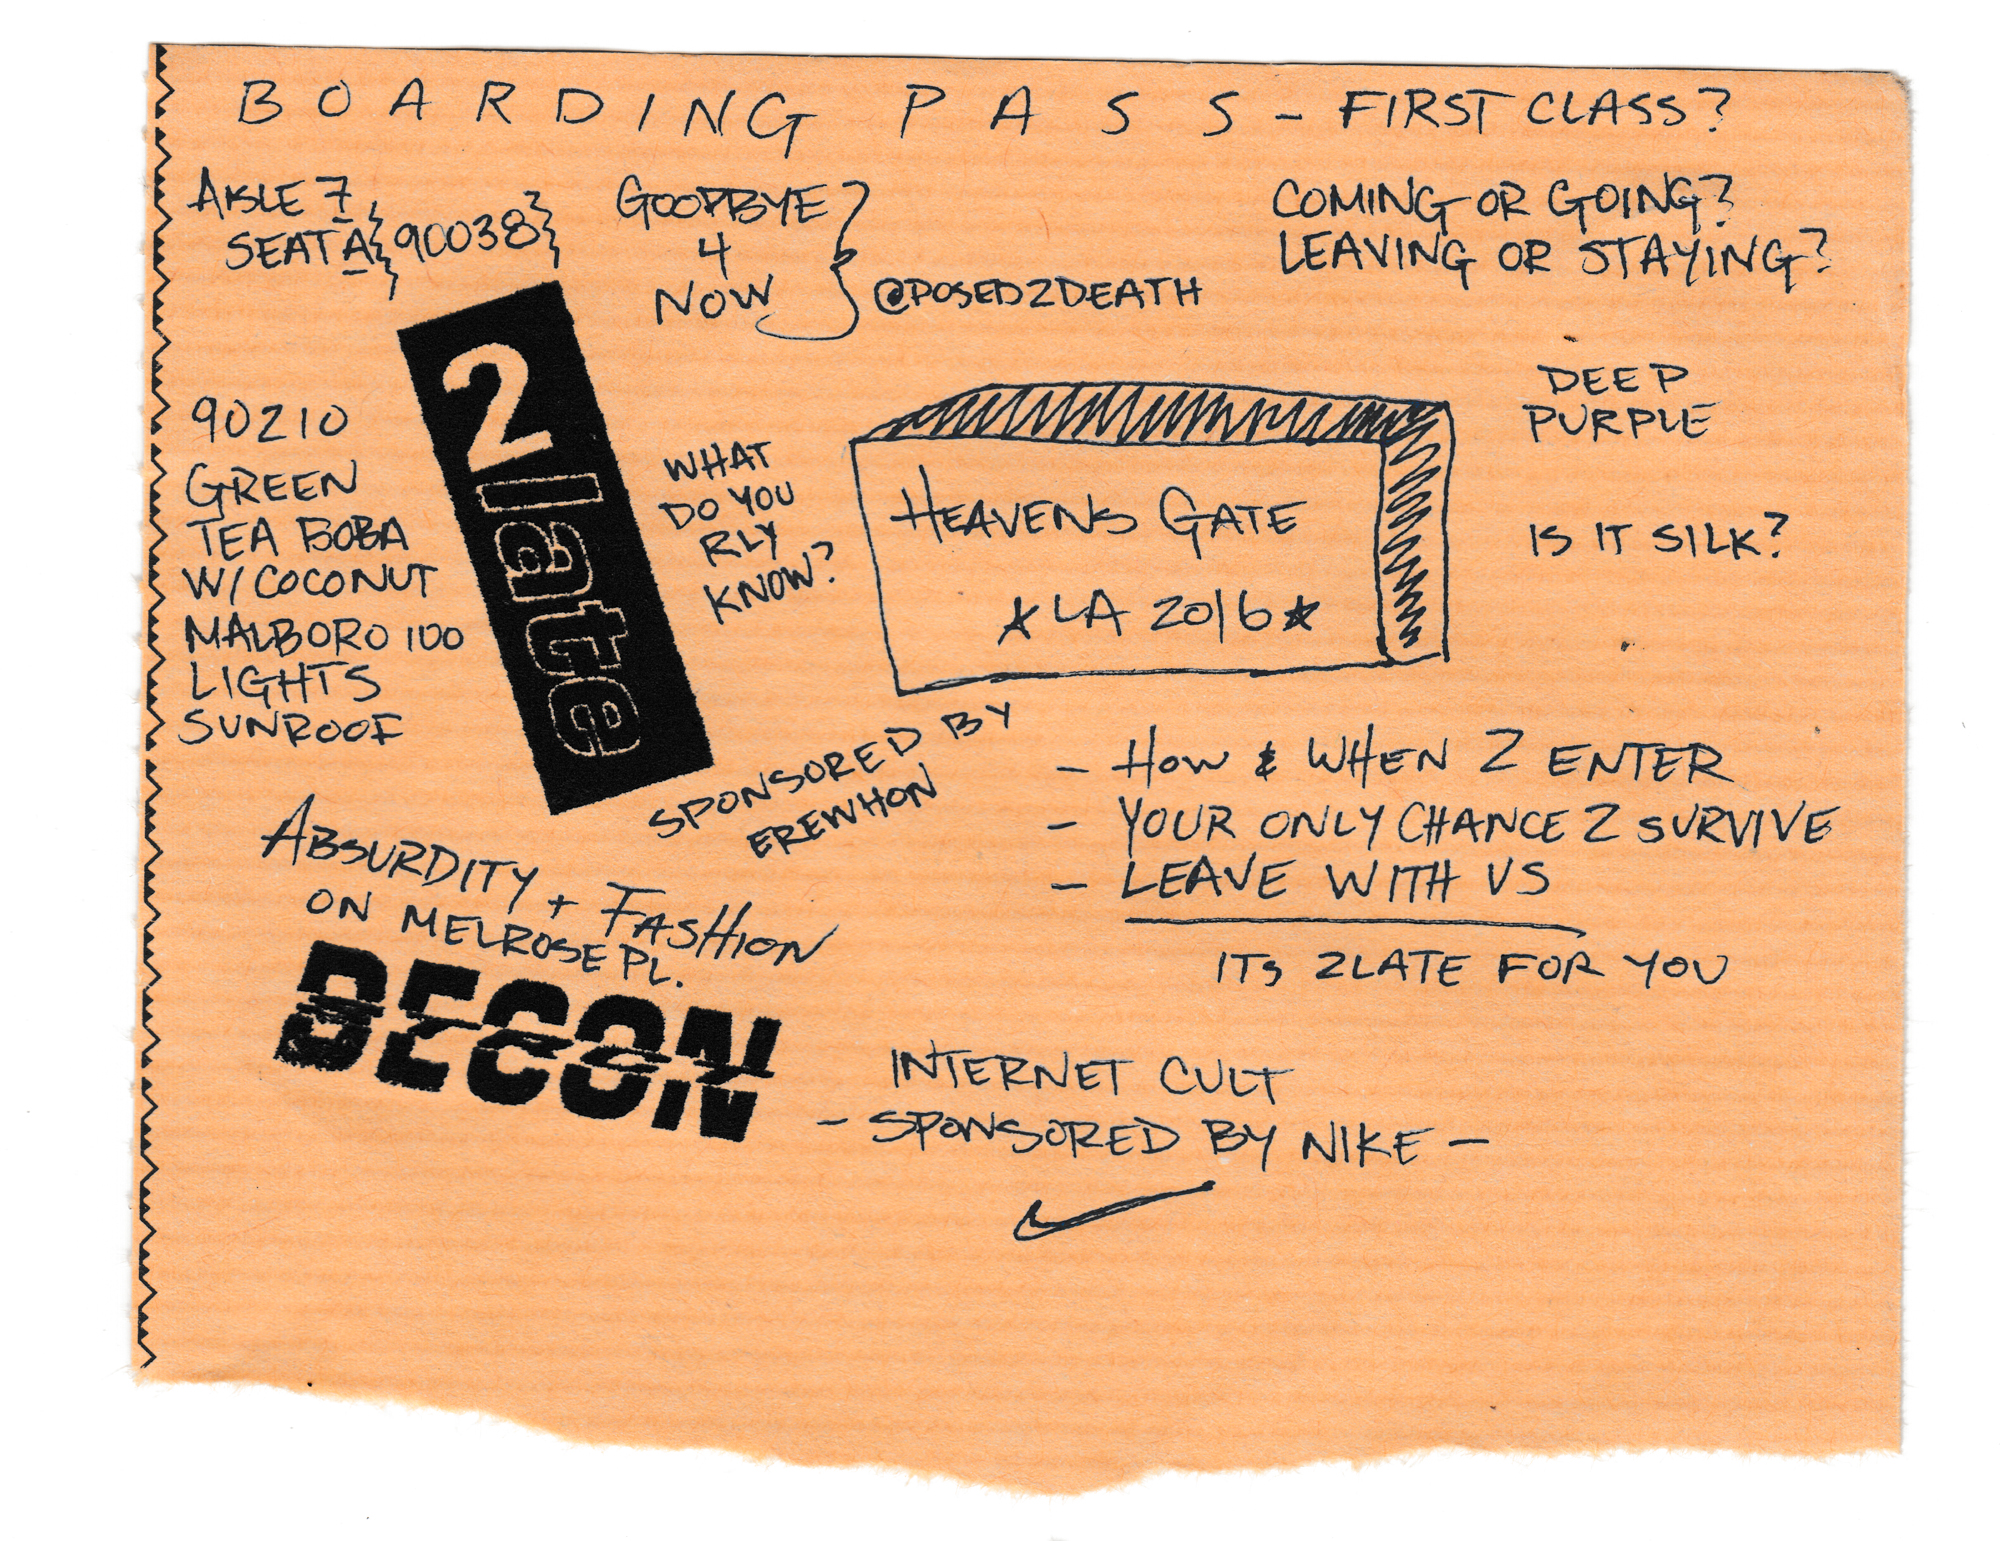 BOARDING PASS - FIRST CLASS?
AISLE 7,
SEAT A
90038
GOODBYE
4
NOW
@POSED2DEATH
COMING OR GOING?
LEAVING OR STAYING?
90210
GREEN
TEA BOBA
W/ COCONUT
MALBORO 100
LIGHTS
SUNROOF
2late
WHAT
DO YOU
RLY
KNOW?
HEAVENS GATE
LA 2016
DEEP
PURPLE
IS IT SILK?
SPONSORED BY
EREWHON
- HOW & WHEN 2 ENTER
- YOUR ONLY CHANCE 2 SURVIVE
- LEAVE WITH US
ITS 2LATE FOR YOU
ABSURDITY + FASHION
ON MELROSE PL.
DECON
INTERNET CULT
- SPONSORED BY NIKE -